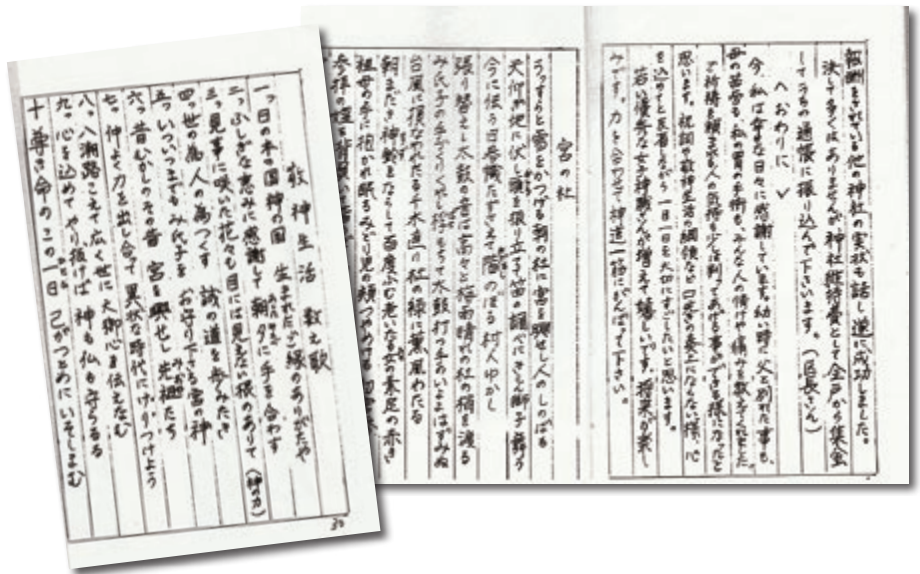 報酬をされている他の神社の実状も話し遂に成功しました。
決して多くはありませんが神社維持費として全戸から集金
してうちの通帳に振り込んで下さいます。(区長さん)
へおわりに
今、私は幸な日々に感謝しています。幼い時に父と別れた事も、
母の苦労も、私の胃の手術も、みんな人の情けや痛みを教えてくれました
で祈祷を頼まれる人の気持も少しは判ってあげる事ができる様になったと
思います。祝詞や敬神生活綱領など口先の奏上にならない様、心
を込めてと反省しながら一日一日を大切にすごしたいと思います。
若い優秀な女子神職さんが増えて嬉しいです。授業が楽し
みです。力を合わせて神道一筋にがんばって下さい。
宮の杜
うっすらと雪をかつげる朝の杜に宮を興せし人のしのばる
天仰ぎ地に伏し頭を振り立てて笛
今に伝う日参旗たずさえて階のぼる村人ゆかし
張り替えし太鼓の音は高々と梅雨晴れの杜の梢を渡る
み氏子の手づくりくれし桴もちて太鼓打つ手のいよよはずみぬ
台風に損なわれたる千木
朝まだき神鈴をならして百度ふむ老いたる女の素足の赤き
祖母の手に抱かれ眠るみどり児の頬
参拝の
敬神生活数え歌
一つ 日の本の国神の国 生まれたご縁のありがたや
二つ ふしぎな恵みに感謝して 朝夕に手を合わす
三つ 見事に咲いた花々も目には見えない根のありて(神の力)
四つ 世の為人の為つくす 誠の道を歩みたき
五つ いついつまでもみ氏子を お守り下さる宮の神
六つ 昔むかしのその昔 宮を興せし先祖たち
七つ 仲よく力を出し合って 異状な時代にけりつけよう
八つ 八潮路こえて広く世に 大御心を伝えなむ
九つ 心を込めてやり抜けば 神も仏も守らるる
十 尊き命のこの一日 己がつとめにいそしまむ